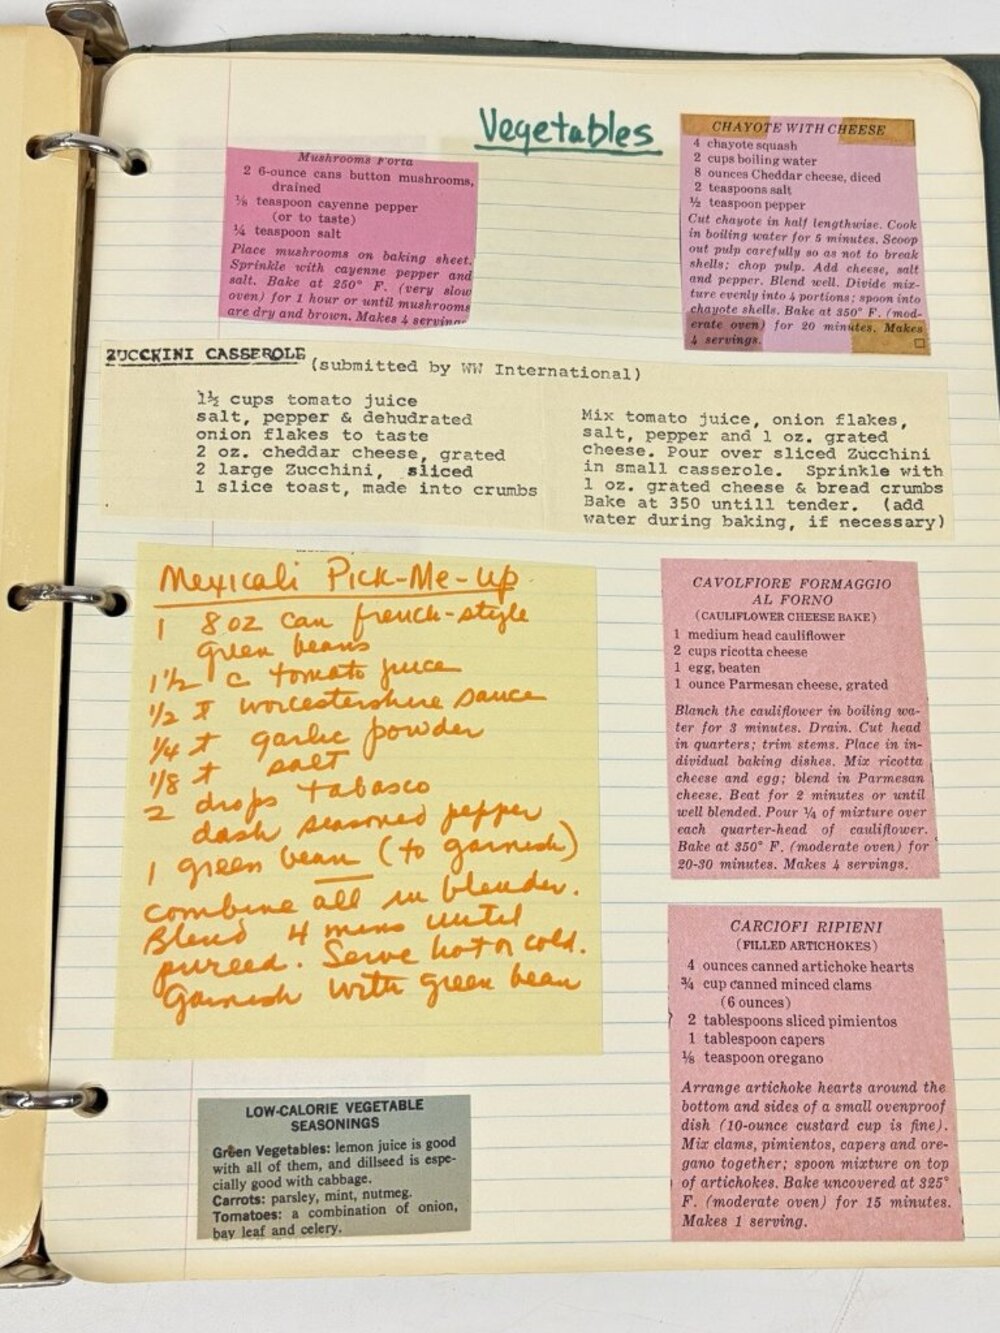 Vegetables
Mushrooms Forta
2 6-ounce cans button mushrooms,
drained
⅛ teaspoon cayenne pepper
(or to taste)
¼ teaspoon salt
Place mushrooms on baking sheet.
Sprinkle with cayenne pepper and
salt. Bake at 250° F. (very slow
oven) for 1 hour or until mushrooms
are dry and brown. Makes 4 servings
CHAYOTE WITH CHEESE
4 chayote squash
2 cups boiling water
8 ounces Cheddar cheese, diced
2 teaspoons salt
½ teaspoon pepper
Cut chayote in half lengthwise. Cook
in boiling water for 5 minutes. Scoop
out pulp carefully so as not to break
shells; chop pulp. Add cheese, salt
and pepper. Blend well. Divide mix-
ture evenly into 4 portions; spoon into
chayote shells. Bake at 350° F. (mod-
erate oven) for 20 minutes. Makes
4 servings.
ZUCCKINI CASSEROLE (submitted by WW International)
1½ cups tomato juice
salt, pepper & dehudrated
onion flakes to taste
2 oz. cheddar cheese, grated
2 large Zucchini, sliced
1 slice toast, made into crumbs
Mix tomato juice, onion flakes,
salt, pepper and 1 oz. grated
cheese. Pour over sliced Zucchini
in small casserole. Sprinkle with
1 oz. grated cheese & bread crumbs
Bake at 350 untill tender. (add
water during baking, if necessary)
Mexicali Pick-Me-Up
1 8 oz can french-style
green beans
1½ c tomato juice
½ T worcestershire sauce
¼ t garlic powder
⅛ t salt
2 drops tabasco
dash seasoned pepper
1 green bean (to garnish)
combine all in blender.
Blend 4 mins until
pureed. Serve hot or cold.
Garnish with green bean
CAVOLFIORE FORMAGGIO
AL FORNO
(CAULIFLOWER CHEESE BAKE)
1 medium head cauliflower
2 cups ricotta cheese
1 egg, beaten
1 ounce Parmesan cheese, grated
Blanch the cauliflower in boiling wa-
ter for 3 minutes. Drain. Cut head
in quarters; trim stems. Place in in-
dividual baking dishes. Mix ricotta
cheese and egg; blend in Parmesan
cheese. Beat for 2 minutes or until
well blended. Pour ¼ of mixture over
each quarter-head of cauliflower.
Bake at 350° F. (moderate oven) for
20-30 minutes. Makes 4 servings.
CARCIOFI RIPIENI
(FILLED ARTICHOKES)
4 ounces canned artichoke hearts
¾ cup canned minced clams
(6 ounces)
2 tablespoons sliced pimientos
1 tablespoon capers
⅛ teaspoon oregano
Arrange artichoke hearts around the
bottom and sides of a small ovenproof
dish (10-ounce custard cup is fine).
Mix clams, pimientos, capers and ore-
gano together; spoon mixture on top
of artichokes. Bake uncovered at 325°
F. (moderate oven) for 15 minutes.
Makes 1 serving.
LOW-CALORIE VEGETABLE
SEASONINGS
Green Vegetables: lemon juice is good
with all of them, and dillseed is espe-
cially good with cabbage.
Carrots: parsley, mint, nutmeg.
Tomatoes: a combination of onion,
bay leaf and celery.